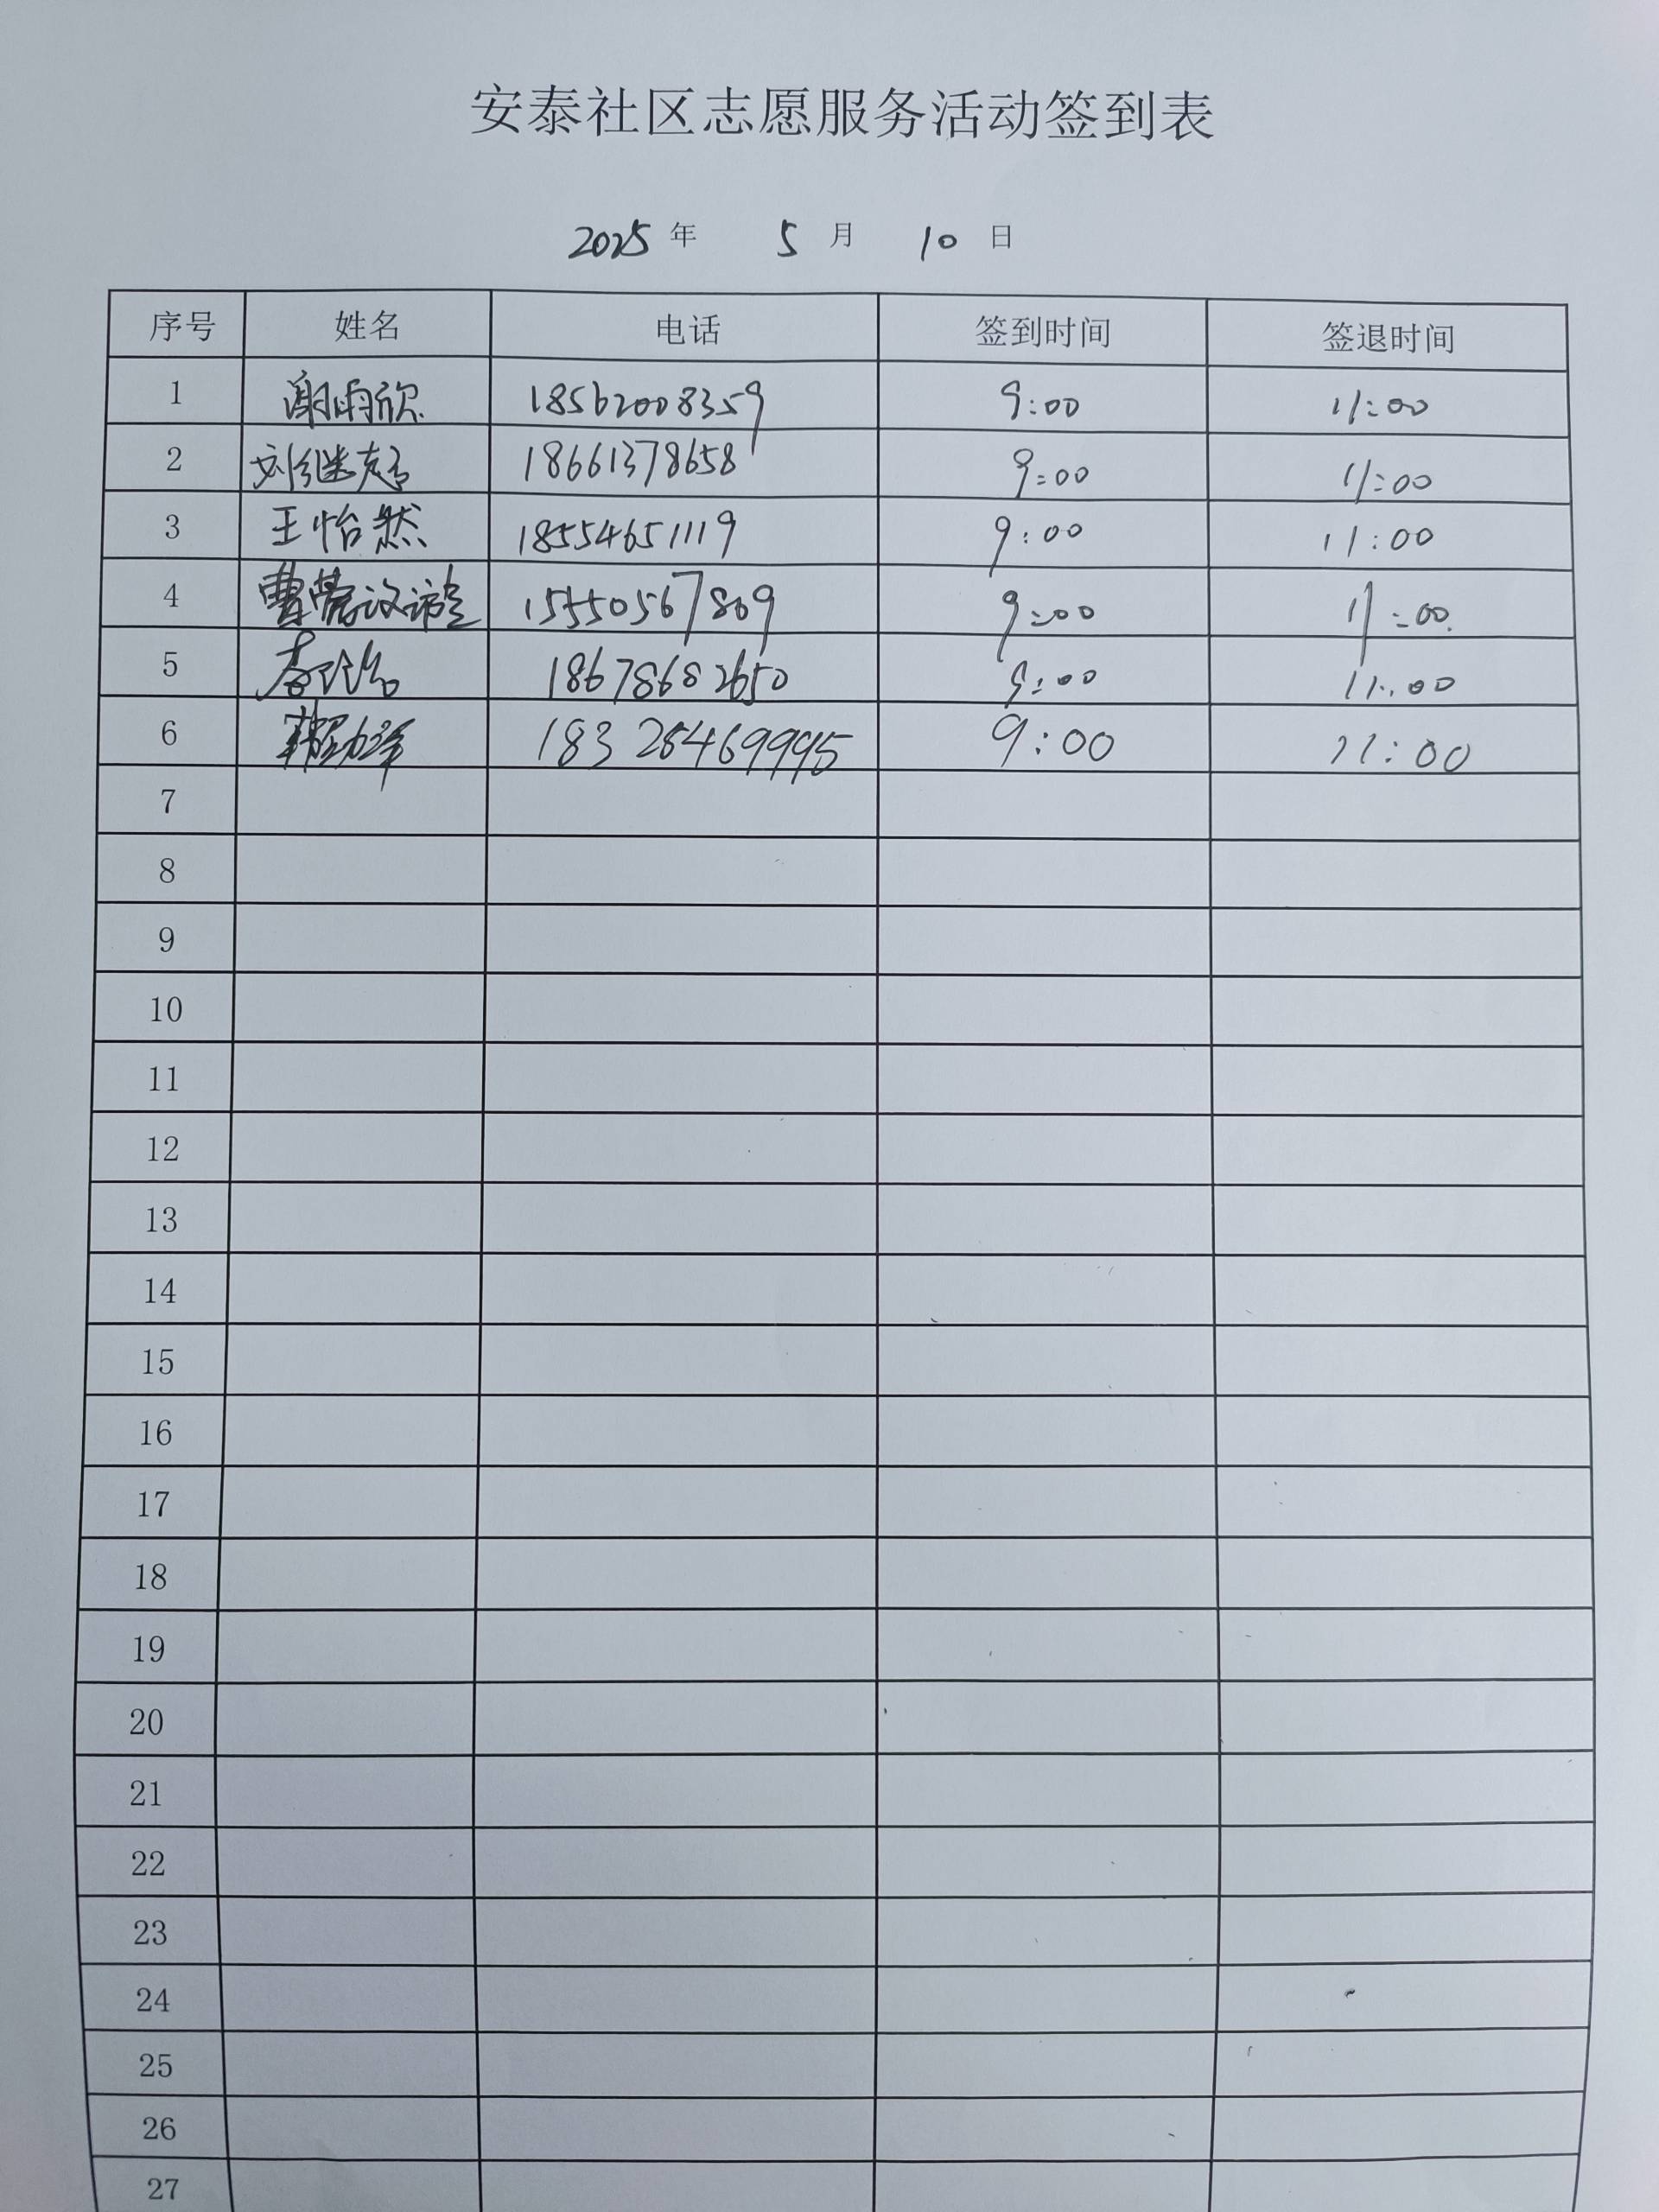 安泰社区志愿服务活动签到表
2025 年 5 月 10 日
序号 姓名 电话 签到时间 签退时间
1 谢雨欣 18562008359 9:00 11:00
2 刘继志 18661378658 9:00 11:00
3 王怡然 18554651119 9:00 11:00
4 15550567809 9:00 11:00
5 18678682650 9:00 11:00
6 9:00 11:00
7
8
9
10
11
12
13
14
15
16
17
18
19
20
21
22
23
24
25
26
27